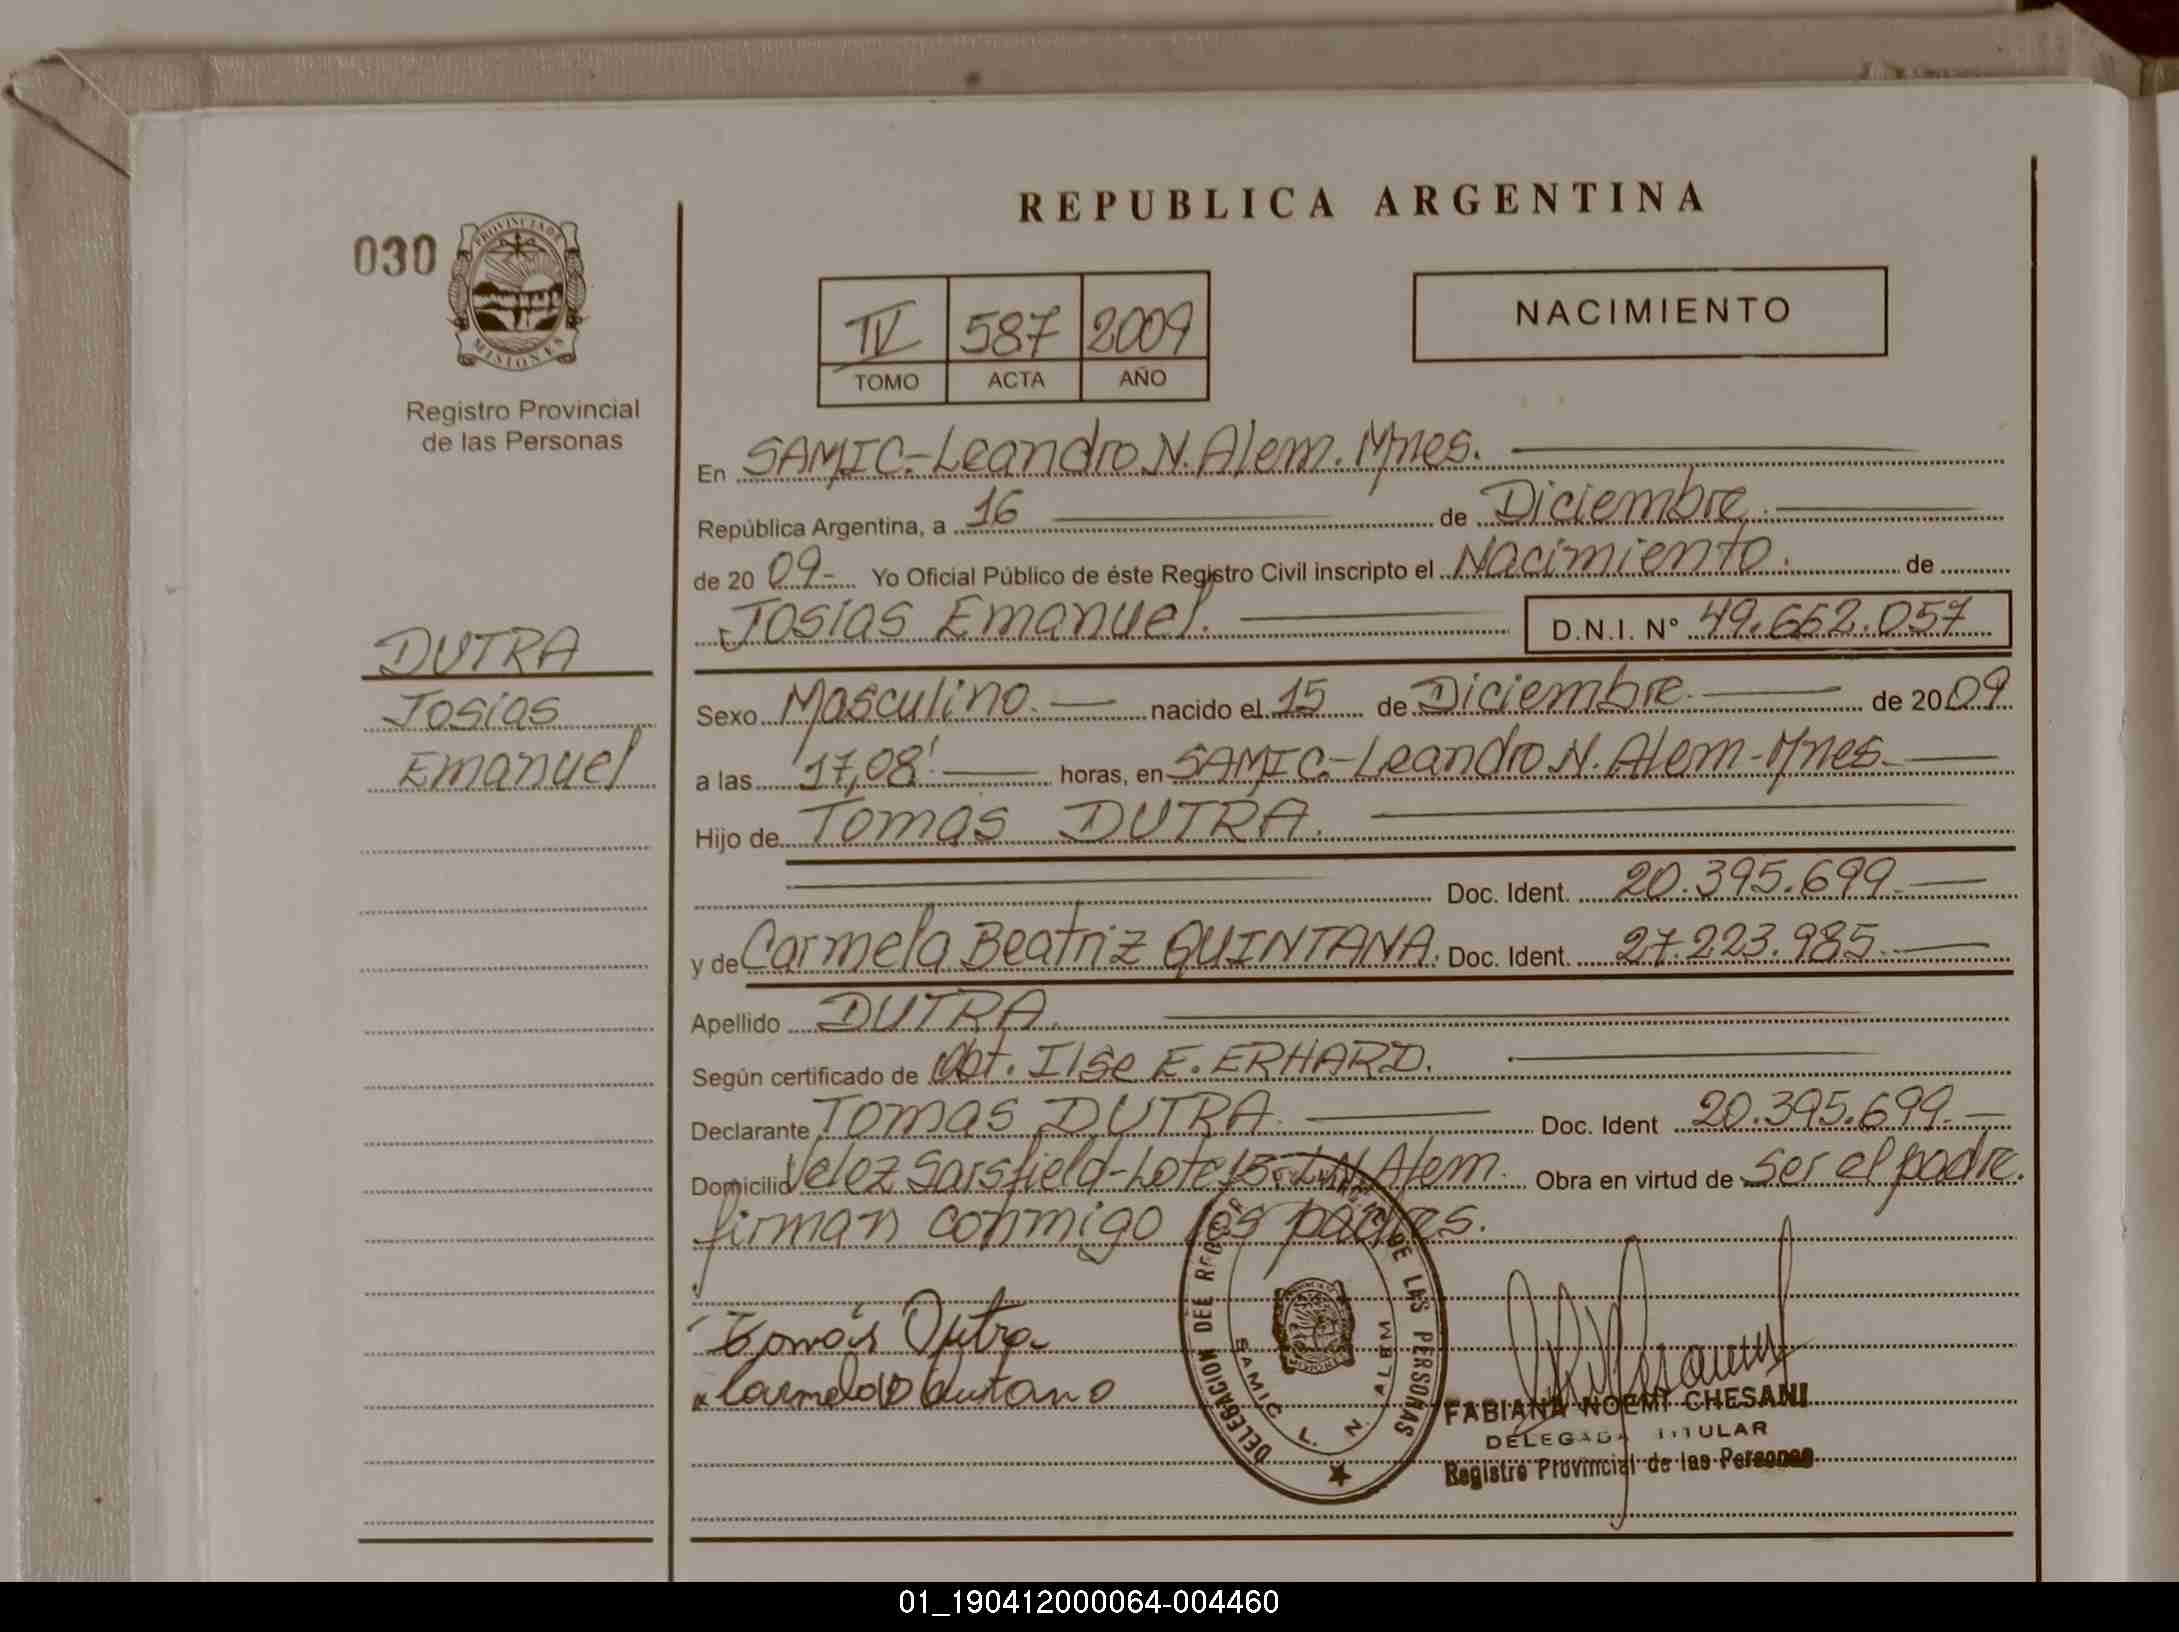 REPUBLICA ARGENTINA
030
PROVINCIA DE
MISIONES
Registro Provincial
de las Personas
NACIMIENTO
IV 587 2009
TOMO ACTA AÑO
En SAMIC.-Leandro N. Alem. Mnes.
República Argentina, a 16 de Diciembre.
de 20 09- Yo Oficial Público de éste Registro Civil inscripto el Nacimiento. de
Josías Emanuel. D.N.I. N° 49.662.057
DUTRA
Josías
Emanuel
Sexo Masculino. nacido el 15 de Diciembre. de 20 09.
a las 17,08' horas, en SAMIC.-Leandro N. Alem-Mnes.
Hijo de Tomas DUTRA.
Doc. Ident. 20.395.699.
y de Carmela Beatriz QUINTANA. Doc. Ident. 27.223.985.
Apellido DUTRA.
Según certificado de Obt. Ilse E. ERHARD.
Declarante Tomas DUTRA. Doc. Ident 20.395.699.-
Domicilio Velez Sarsfield-Lote 15-L.N. Alem. Obra en virtud de ser el padre.
firman conmigo los padres.
Tomás Dutra
DELEGACION DEL REG DE LAS PERSONAS
SAMIC L. N. ALEM
MISIONES
FABIANA NOEMI CHESANI
DELEGADA TITULAR
Registro Provincial de las Personas
01_190412000064-004460